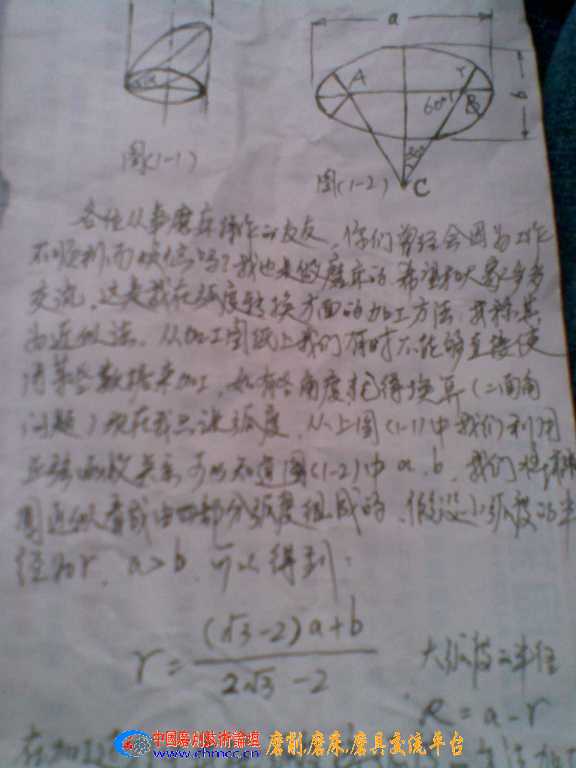 a
A
r
60°
B
b
30°
C
图(1-1)
图(1-2)
各位从事磨床操作的友友,你们曾经会因为工作
不顺利而烦恼吗?我也是做磨床的,希望和大家多多
交流,这是我在弧度转换方面的加工方法,我称其
为近似法。从加工图纸上我们有时不能够直接使
用某些数据来加工,如有些角度就得换算(二面角
问题)现在我只谈弧度,从上图(1-1)中我们利用
正弦函数关系可以知道图(1-2)中a、b,我们将椭
圆近似看成由四部分弧度组成的,假设小弧度的半
径为r,a>b,可以得到:
r = (√3-2)a+b / 2√3-2
大弧度的半径
R = a-r
在加工
中国磨削技术论坛
www.chmcc.cn
磨削,磨床,磨具交流平台